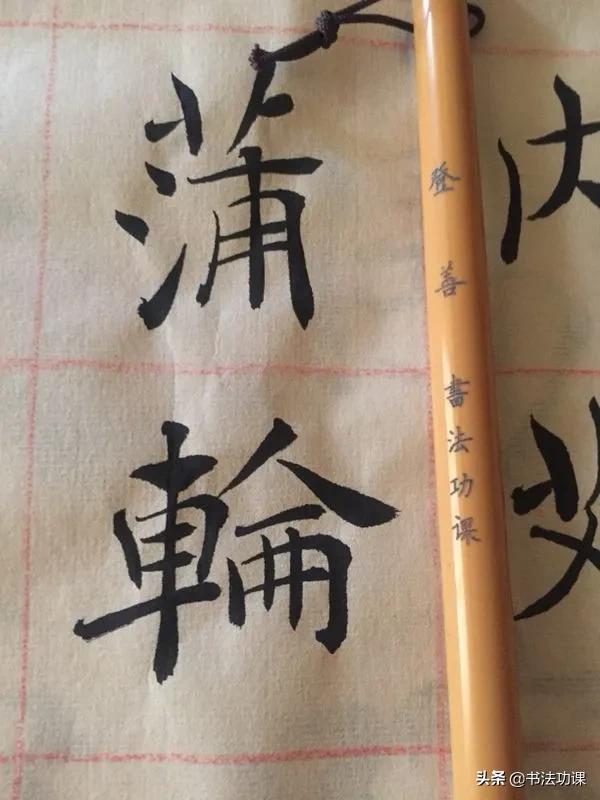 蒲
輪
登善書法功课
头条 @书法功课